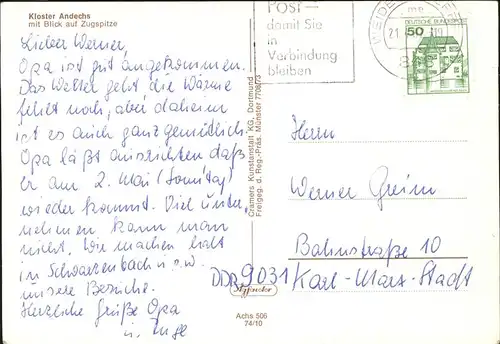 Kloster Andechs
mit Blick auf Zugspitze
Lieber Werner,
Opa ist gut angekommen.
Das Wetter geht, die Wärme
fehlt noch, aber daheim
ist es auch ganz gemütlich.
Opa läßt ausrichten daß
er am 2. Mai (Sonntag)
wieder kommt. Viel unter
nehmen kann man
nicht. Wir machen halt
in Schwarzenbach u.s.w.
unsere Besuche.
Herzliche Grüße Opa
u. Inge
Cramers Kunstanstalt KG, Dortmund
Freigeg. d. Reg.-Präs. Münster 7708/73
POST –
damit Sie
in
Verbindung
bleiben
DEUTSCHE BUNDESPOST
50
Herrn
Werner Greim
Bahnstraße 10
DDR 9031 Karl-Marx-Stadt
Achs 506
74/10